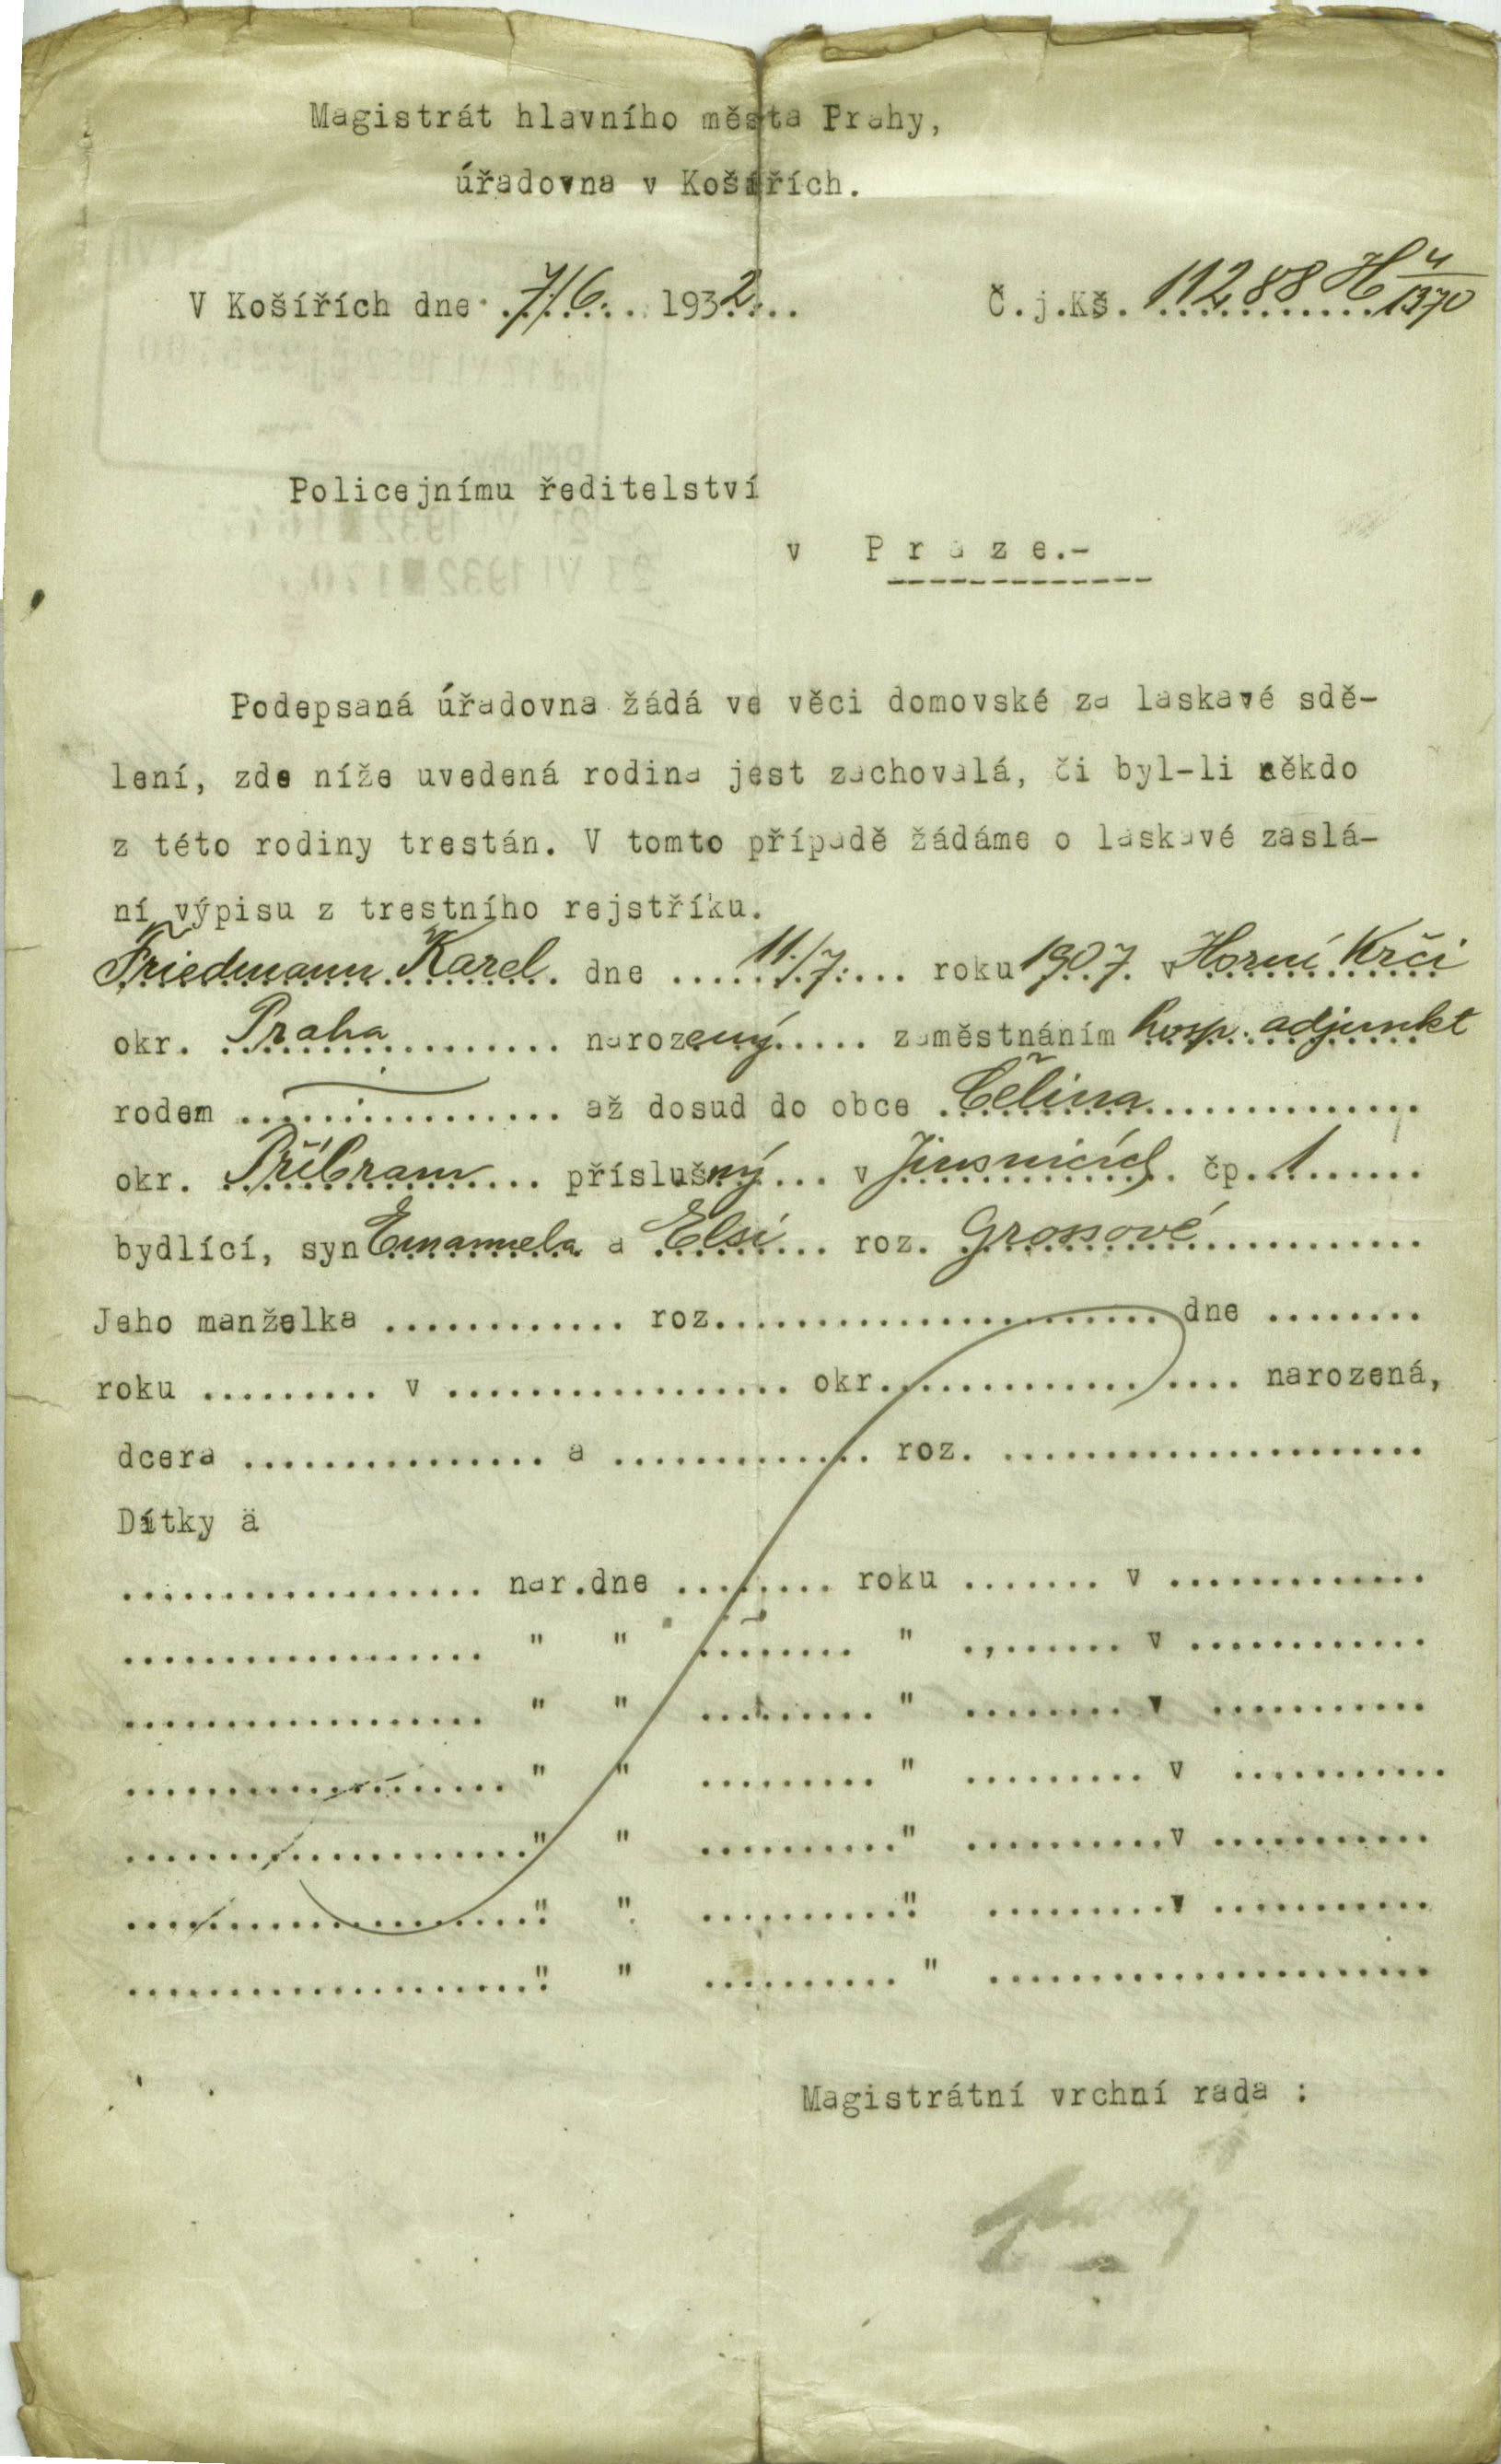 Magistrát hlavního města Prahy,
úřadovna v Košířích.
V Košířích dne 7/6. 1932.
Č.j.Kš. 11288 H 4/1370
Policejnímu ředitelství
v P r a z e.-
Podepsaná úřadovna žádá ve věci domovské za laskavé sdě-
lení, zde níže uvedená rodina jest zachovalá, či byl-li někdo
z této rodiny trestán. V tomto případě žádáme o laskavé zaslá-
ní výpisu z trestního rejstříku.
Friedmann Karel. dne .....11./7..... roku 1907. v Horní Krči
okr. Praha................ narozený..... zaměstnáním hosp. adjunkt
rodem ................ až dosud do obce Čelina................
okr. Příbram.... příslušný... v Jinonicích. čp. 1.......
bydlící, syn Emanuela a Elsi... roz. Grossové................
Jeho manželka ............ roz....................... dne ........
roku ......... v ................. okr.................. narozená,
dcera ............... a ............. roz. .....................
Dítky ä
.................. nar.dne ........ roku ....... v .............
.................. " " ........ " ........ v ............
.................. " " ......... " ........ v ...........
................... " " ......... " ......... v ...........
...................." " .........." ..........v ...........
....................." " .........." .........v ...........
....................." " .......... " ......................
Magistrátní vrchní rada :